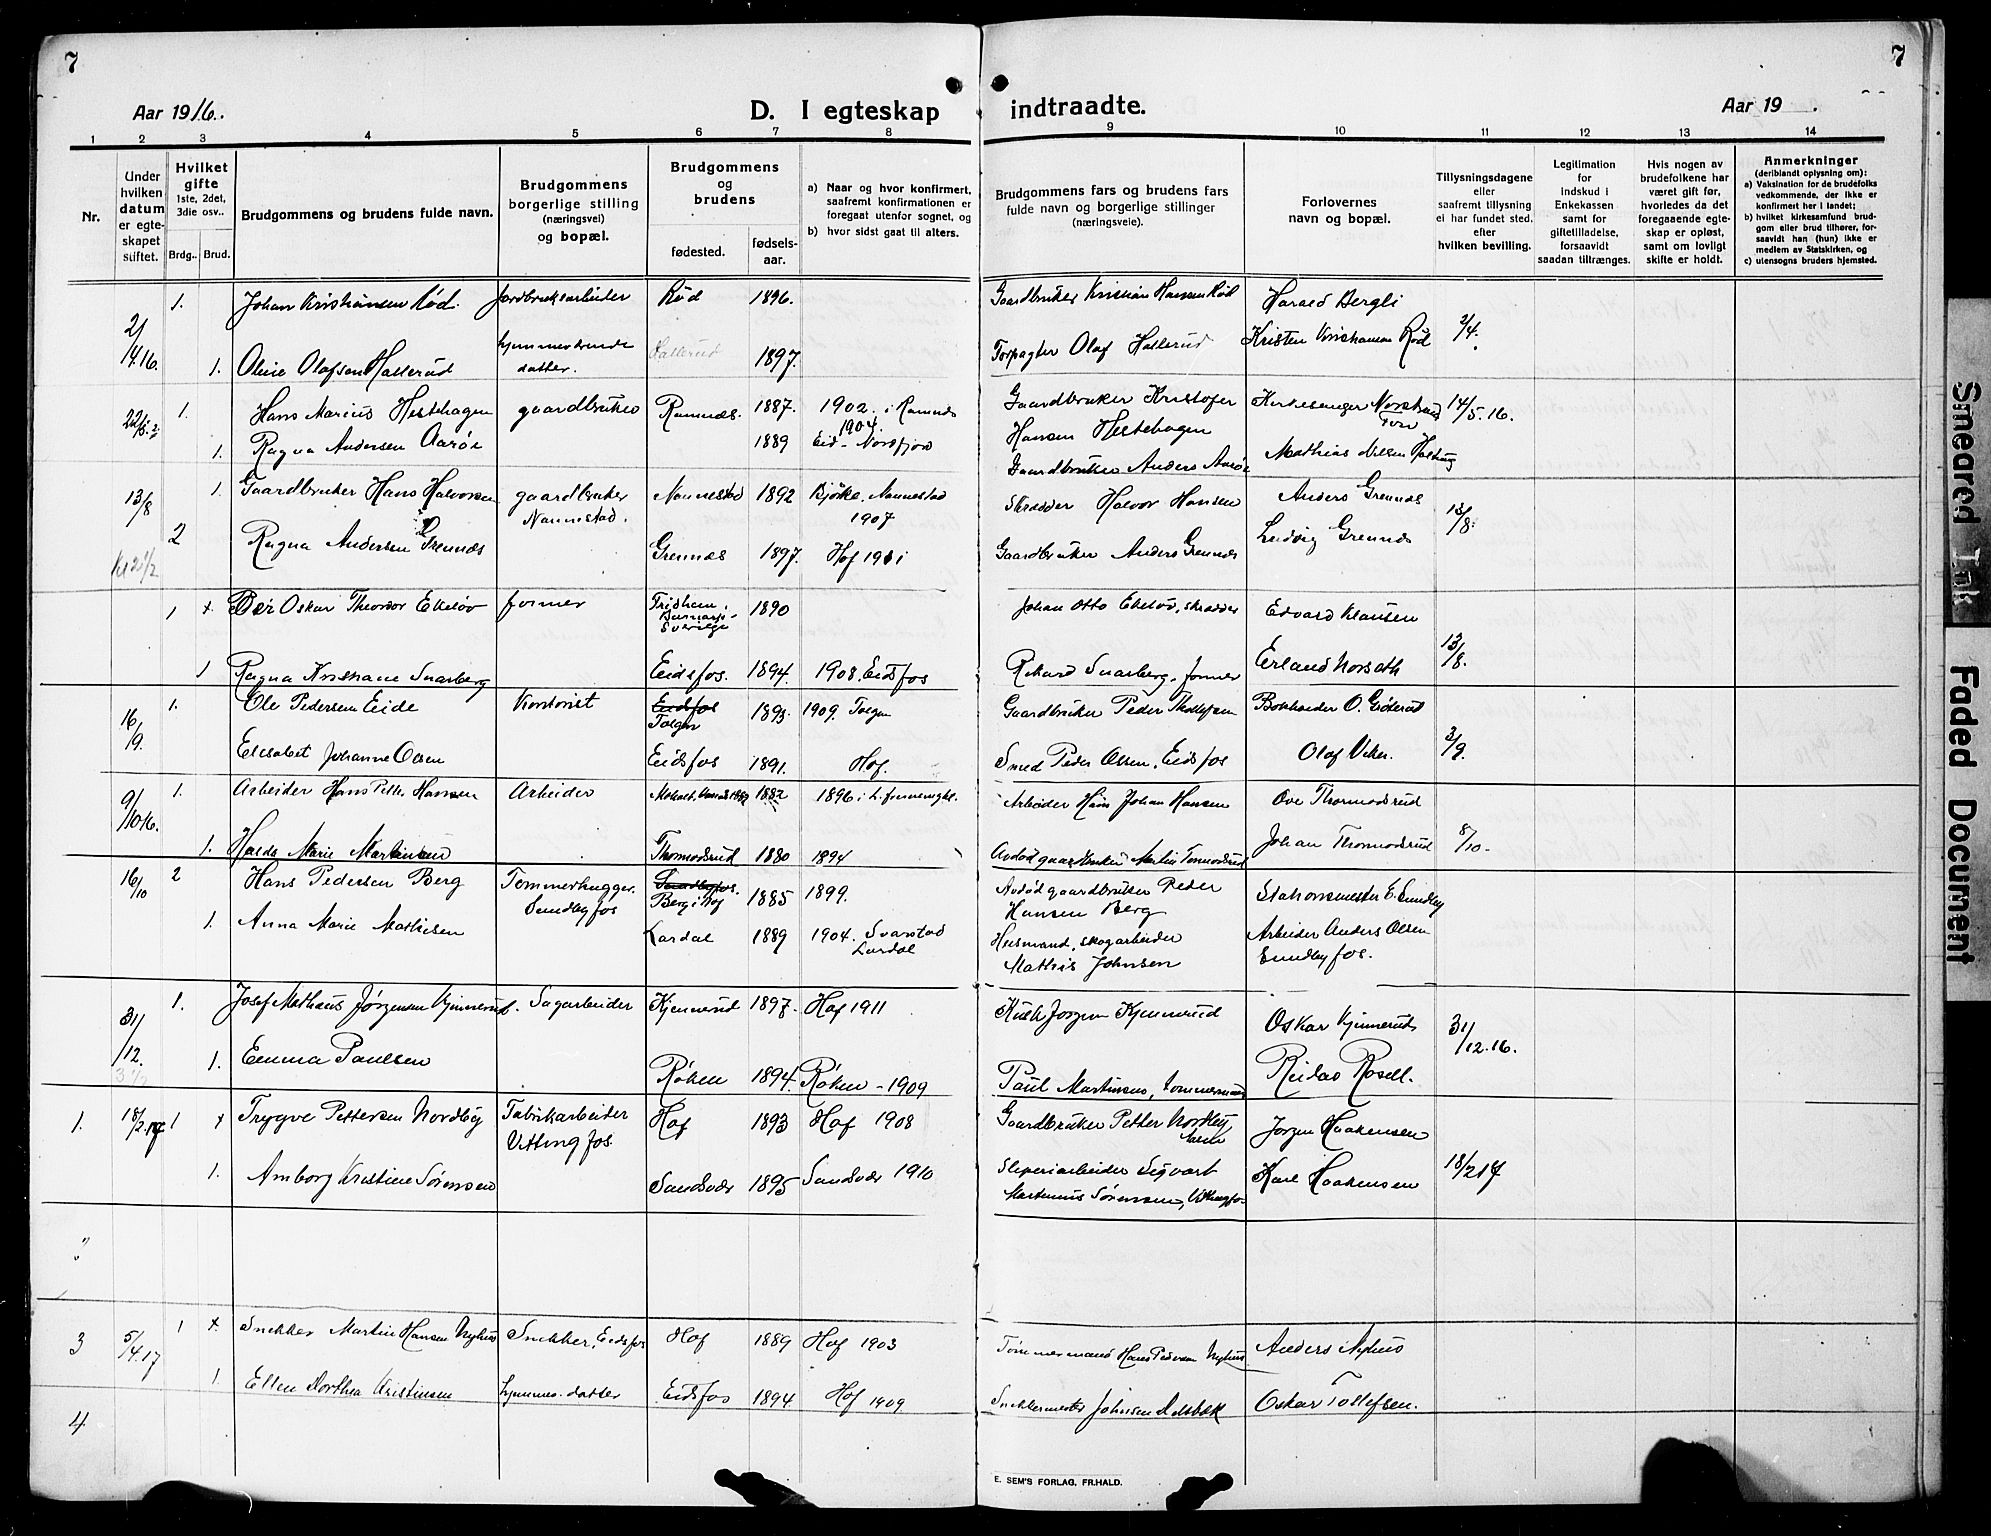 7
7
Aar 1916.
D. I egteskap indtraadte.
Aar 19 .
1 2 3 4 5 6 7 8 9 10 11 12 13 14
Nr.
Under hvilken datum er egteskapet stiftet.
Hvilket gifte 1ste, 2det, 3die osv..
Brdg.. Brud.
Brudgommens og brudens fulde navn.
Brudgommens borgerlige stilling (næringsvei) og bopæl.
Brudgommens og brudens
fødested. fødselsaar.
a) Naar og hvor konfirmert, saafremt konfirmationen er foregaat utenfor sognet, og
b) hvor sidst gaat til alters.
Brudgommens fars og brudens fars fulde navn og borgerlige stillinger (næringsveie).
Forlovernes navn og bopæl.
Tillysningsdagene eller saafremt tillysning ei har fundet sted. efter hvilken bevilling.
Legitimation for indskud i Enkekassen samt for giftetilladelse, forsaavidt saadan tiltrænges.
Hvis nogen av brudefolkene har været gift før, hvorledes da det foregaaende egteskap er opløst, samt om lovligt skifte er holdt.
Anmerkninger (deriblandt oplysning om):
a) Vaksination for de brudefolks vedkommende, der ikke er konfirmert her i landet;
b) hvilket kirkesamfund brudgom eller brud tilhører, forsaavidt han (hun) ikke er medlem av Statskirken, og
c) utensogns bruders hjemsted.
2/4.16. 1. Johan Kristiansen Rød. Jordbruksarbeider Rød 1896. Gaardbruker Kristian Hansen Rød Harald Bergli 2/4.
1. Oline Olafsen Hallerud hjemmeværende datter. Hallerud 1897. Forpagter Olaf Hallerud Kristen Kristiansen Rød
1. Hans Marius Hestehagen gaardbruker Ramnæs. 1887. 1902. i Ramnæs Gaardbruker Kristofer Hansen Hestehagen Kirkesanger 14/5.16.
1. Ragna Andersen Aarøe 1889 1904. Eid - Nordfjord Gaardbruker Anders Aarøe Mathias Nilsen
13/8 1. Gaardbruker Hans Halvorsen gaardbruker Nannestad. Nannestad 1892 Bjørke, Nannestad 1907 Skrædder Halvor Hansen Anders Grennes 13/8.
2 Ragna Andersen Grennæs Grennæs 1897. Hof 1911 Gaardbruker Anders Grennæs Ludvig Grennæs
1 + Per Oskar Theodor Ekeløv former Fridhem. Sverige 1890 Johan Otto Ekeløv, skrædder Edvard Klausen
1 Ragna Kristiane Snarberg Eidsfos. 1894. 1908. Eidsfos Rikard Snarberg, former Erland Norseth 13/8.
16/9. 1. Ole Pedersen Eide Kontorist Eidsfos Tolgen 1893. 1909. Tolgen Gaardbruker Peder Bokholder O. 3/9.
Elisabet Johanne Olsen Eidsfos 1891. Hof. Smed Peder Olsen, Eidsfos Olaf Viker.
9/10 16. 1. Arbeider Hans Petter Hansen Arbeider 1882 1896 i Arbeider Hans Johan Hansen Ove Thormodsrud
1. Marie Martinsen Thormodsrud 1880 1894 Avdød gaardbruker Martin Tormodsrud Johan Thormodsrud 8/10.
16/10 2 Hans Pedersen Berg Tømmerhugger. Sundbyfos Sundbyfos. Berg i Hof 1885 1899. Avdød gaardbruker Peder Hansen Berg Stationsmester E. Sundby
1. Anna Marie Mathisen Lardal 1889 1904. Svarstad Lardal Husmand, skogarbeider Mathis Johnsen Arbeider Anders Olsen Sundbyfos.
31/12. 1. Josef Mathæus Jørgensen Kjennerud. Sagarbeider Kjennerud 1897. Hof 1911 Jørgen Kjennerud Oskar Kjennerud 31/12.16.
1. Emma Paulsen Røken 1894. Røken - 1909 Paul Martinsen, tømmermand Reidar Rosell.
1. 18/2.17 1 + Trygve Pettersen Nordby Fabrikarbeider Vittingfos Hof 1893 Hof 1908 Gaardbruker Petter Nordby, Jørgen Haakensen
1. Amborg Kristine Sørensen Sandsvær 1895 Sandsvær 1910 Sliperiarbeider Sigvart Martinius Sørensen, Vittingfos Karl Haakensen 18/2 17
3 5/4.17 1 + Snekker Martin Hansen Nyhus Snekker, Eidsfos Hof 1889 Hof 1903 Tømmermand Hans Pedersen Nyhus Anders Nyhus
1. Ellen Dorthea Kristinsen hjemmev. datter Eidsfos 1894 Hof 1909 Snekkermester Johnsen Oskar Tollefsen.
4
E. SEM'S FORLAG, FR.HALD.
Smeared Ink
Faded Document